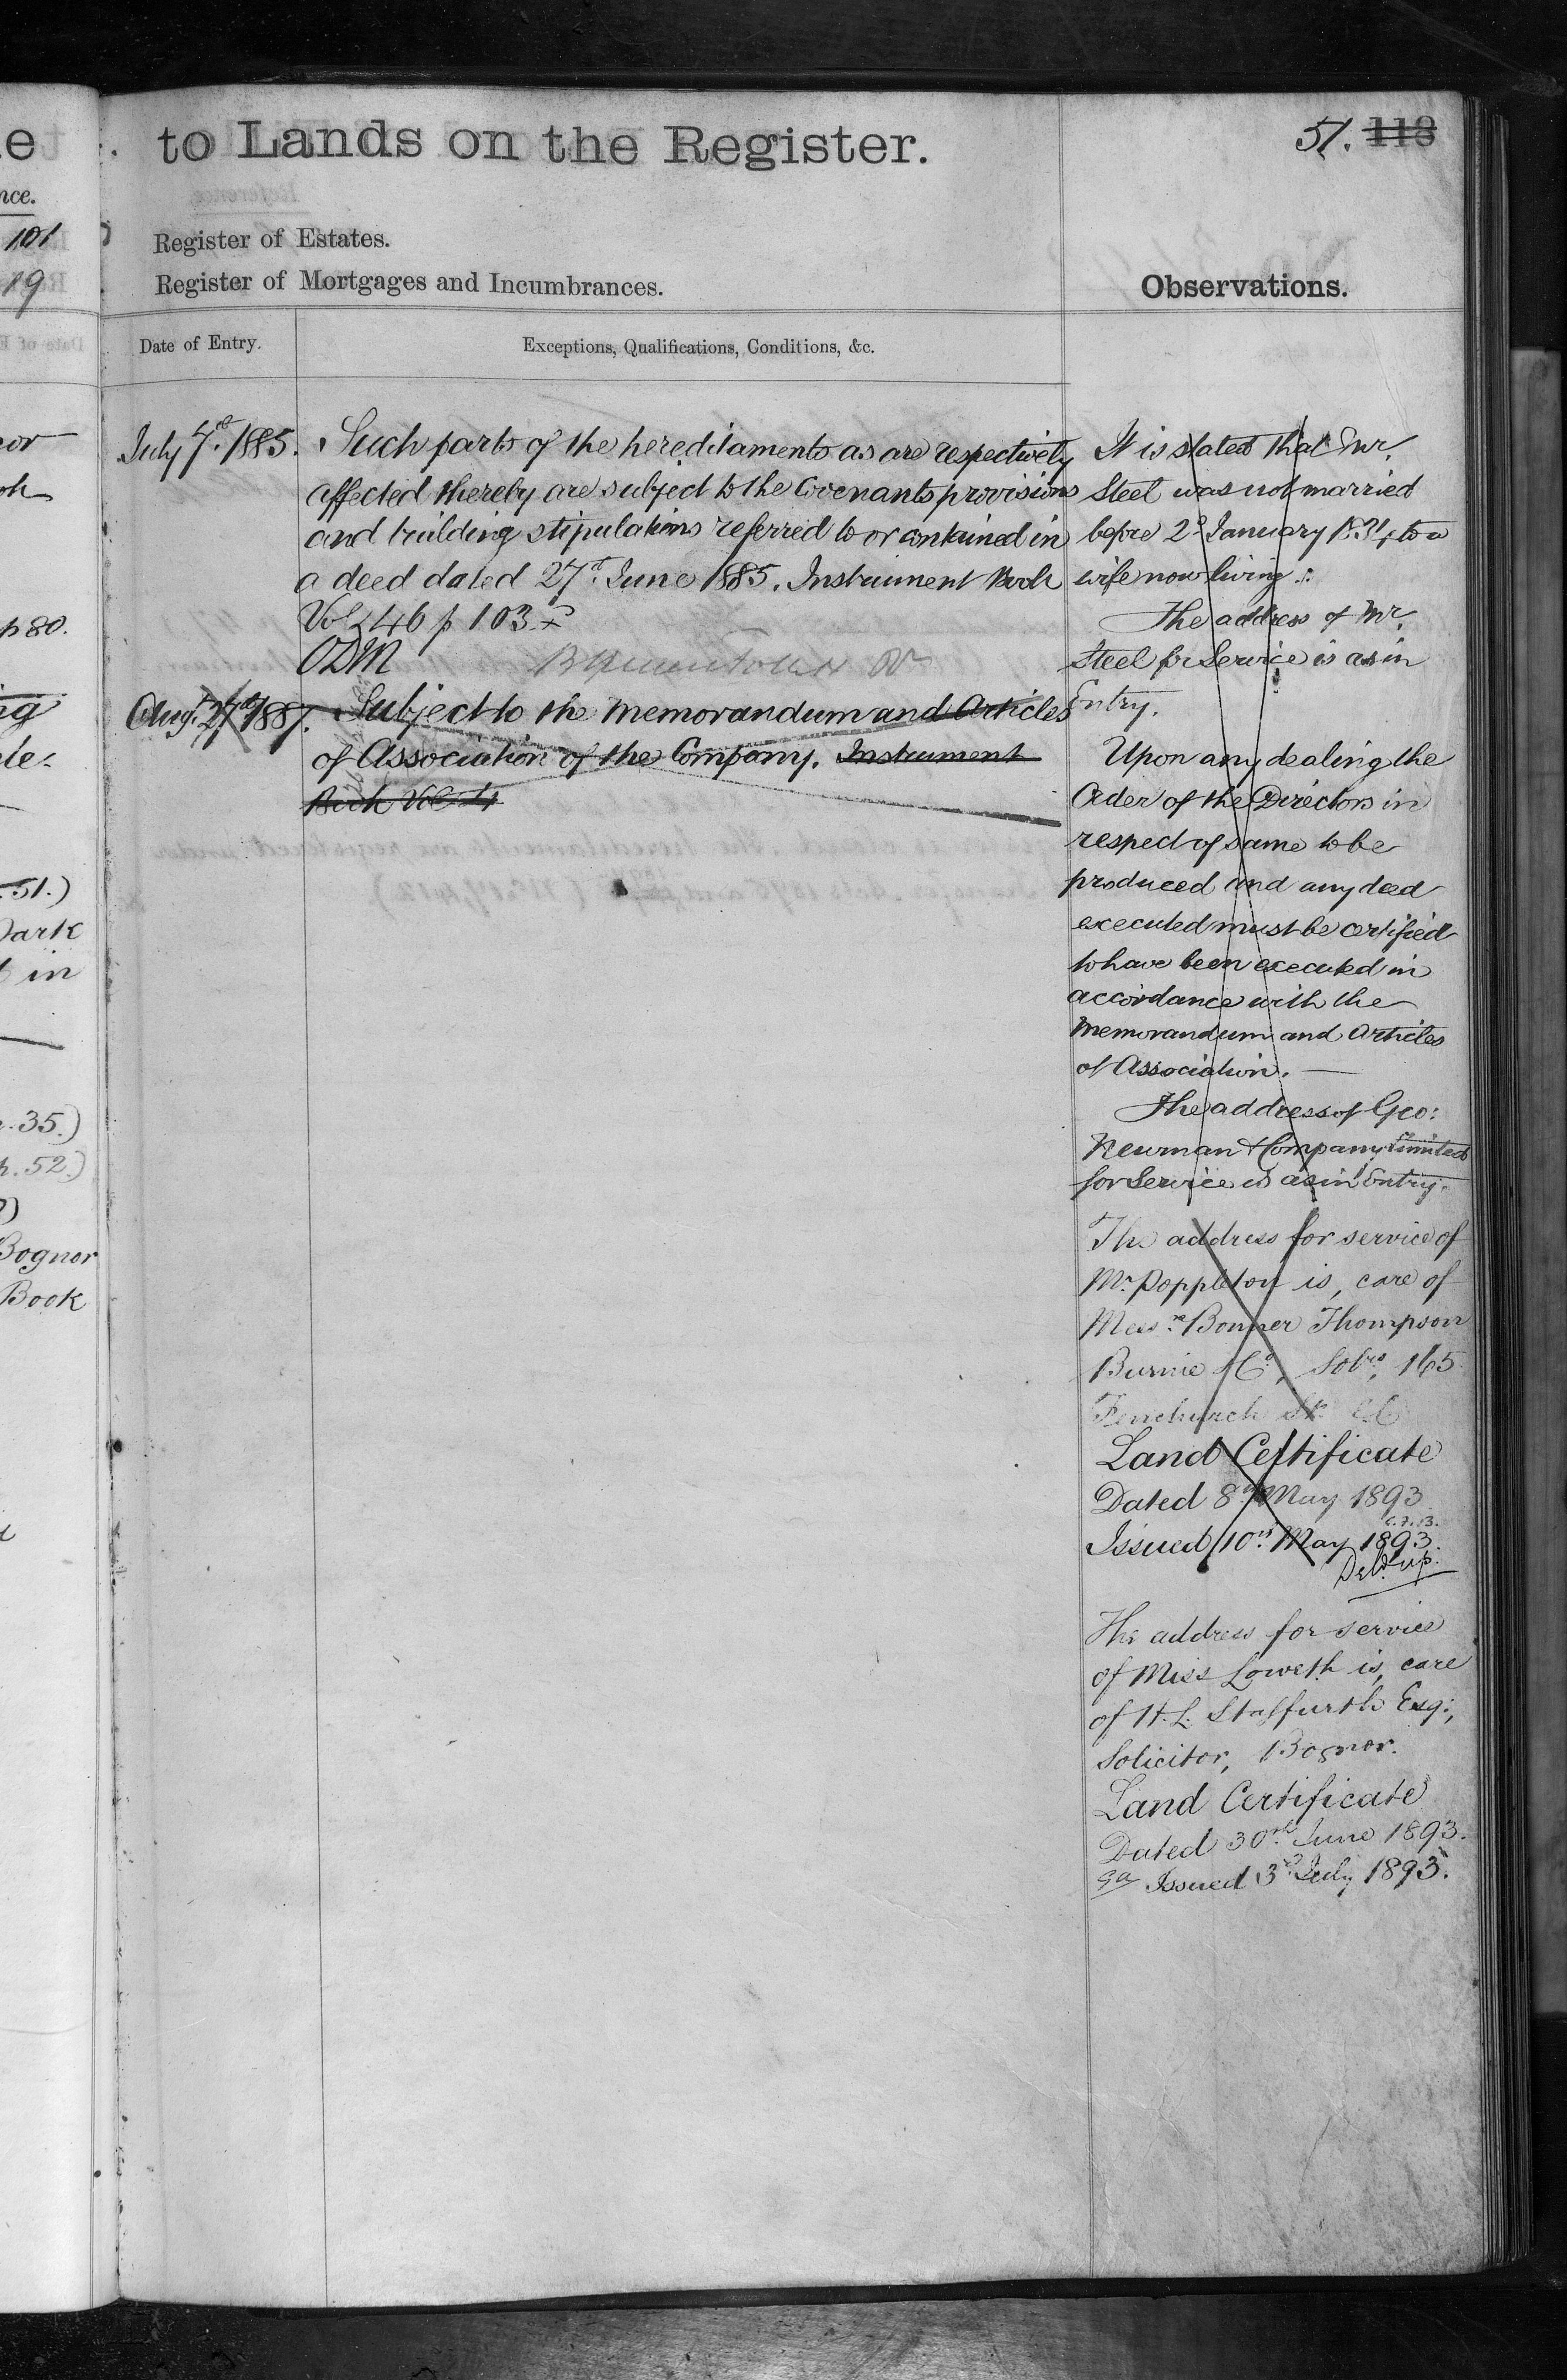 e
nce.
101
19
or
p 80.
51.)
Park
in
35.)
p. 52.)
Bognor
Book
to Lands on the Register.
51. 113
Register of Estates.
Register of Mortgages and Incumbrances.
Observations.
Date of Entry.
Exceptions, Qualifications, Conditions, &c.
July 7th 1885.
Such parts of the hereditaments as are respectively
affected thereby are subject to the Covenants provisions
and building stipulations referred to or contained in
a deed dated 27th June 1885. Instrument Book
Vol 46 p 103
ODM
Augt 27th 1887.
Subject to the Memorandum and Articles
of Association of the Company. Instrument
Book Vol 4
It is stated that Mr.
Steel was not married
before 2d January 1834 to a
wife now living.
The address of Mr.
Steel for Service is as in
Entry.
Upon any dealing the
Order of the Directors in
respect of same to be
produced and any deed
executed must be certified
to have been executed in
accordance with the
Memorandum and Articles
of Association. —
The address of Geo:
Newman & Company Limited
for Service is as in Entry.
The address for service of
Mr. Poppleton is, care of
Messrs. Bonner Thompson
Burnie & Co, Solrs, 165
Fenchurch St. EC
Land Certificate
Dated 8th May 1893
Issued 10th May 1893.
Deld. up.
The address for service
of Miss Loweth is, care
of H. L. Staffurth Esq:,
Solicitor, Bognor.
Land Certificate
Dated 30th June 1893.
Issued 3rd July 1893.